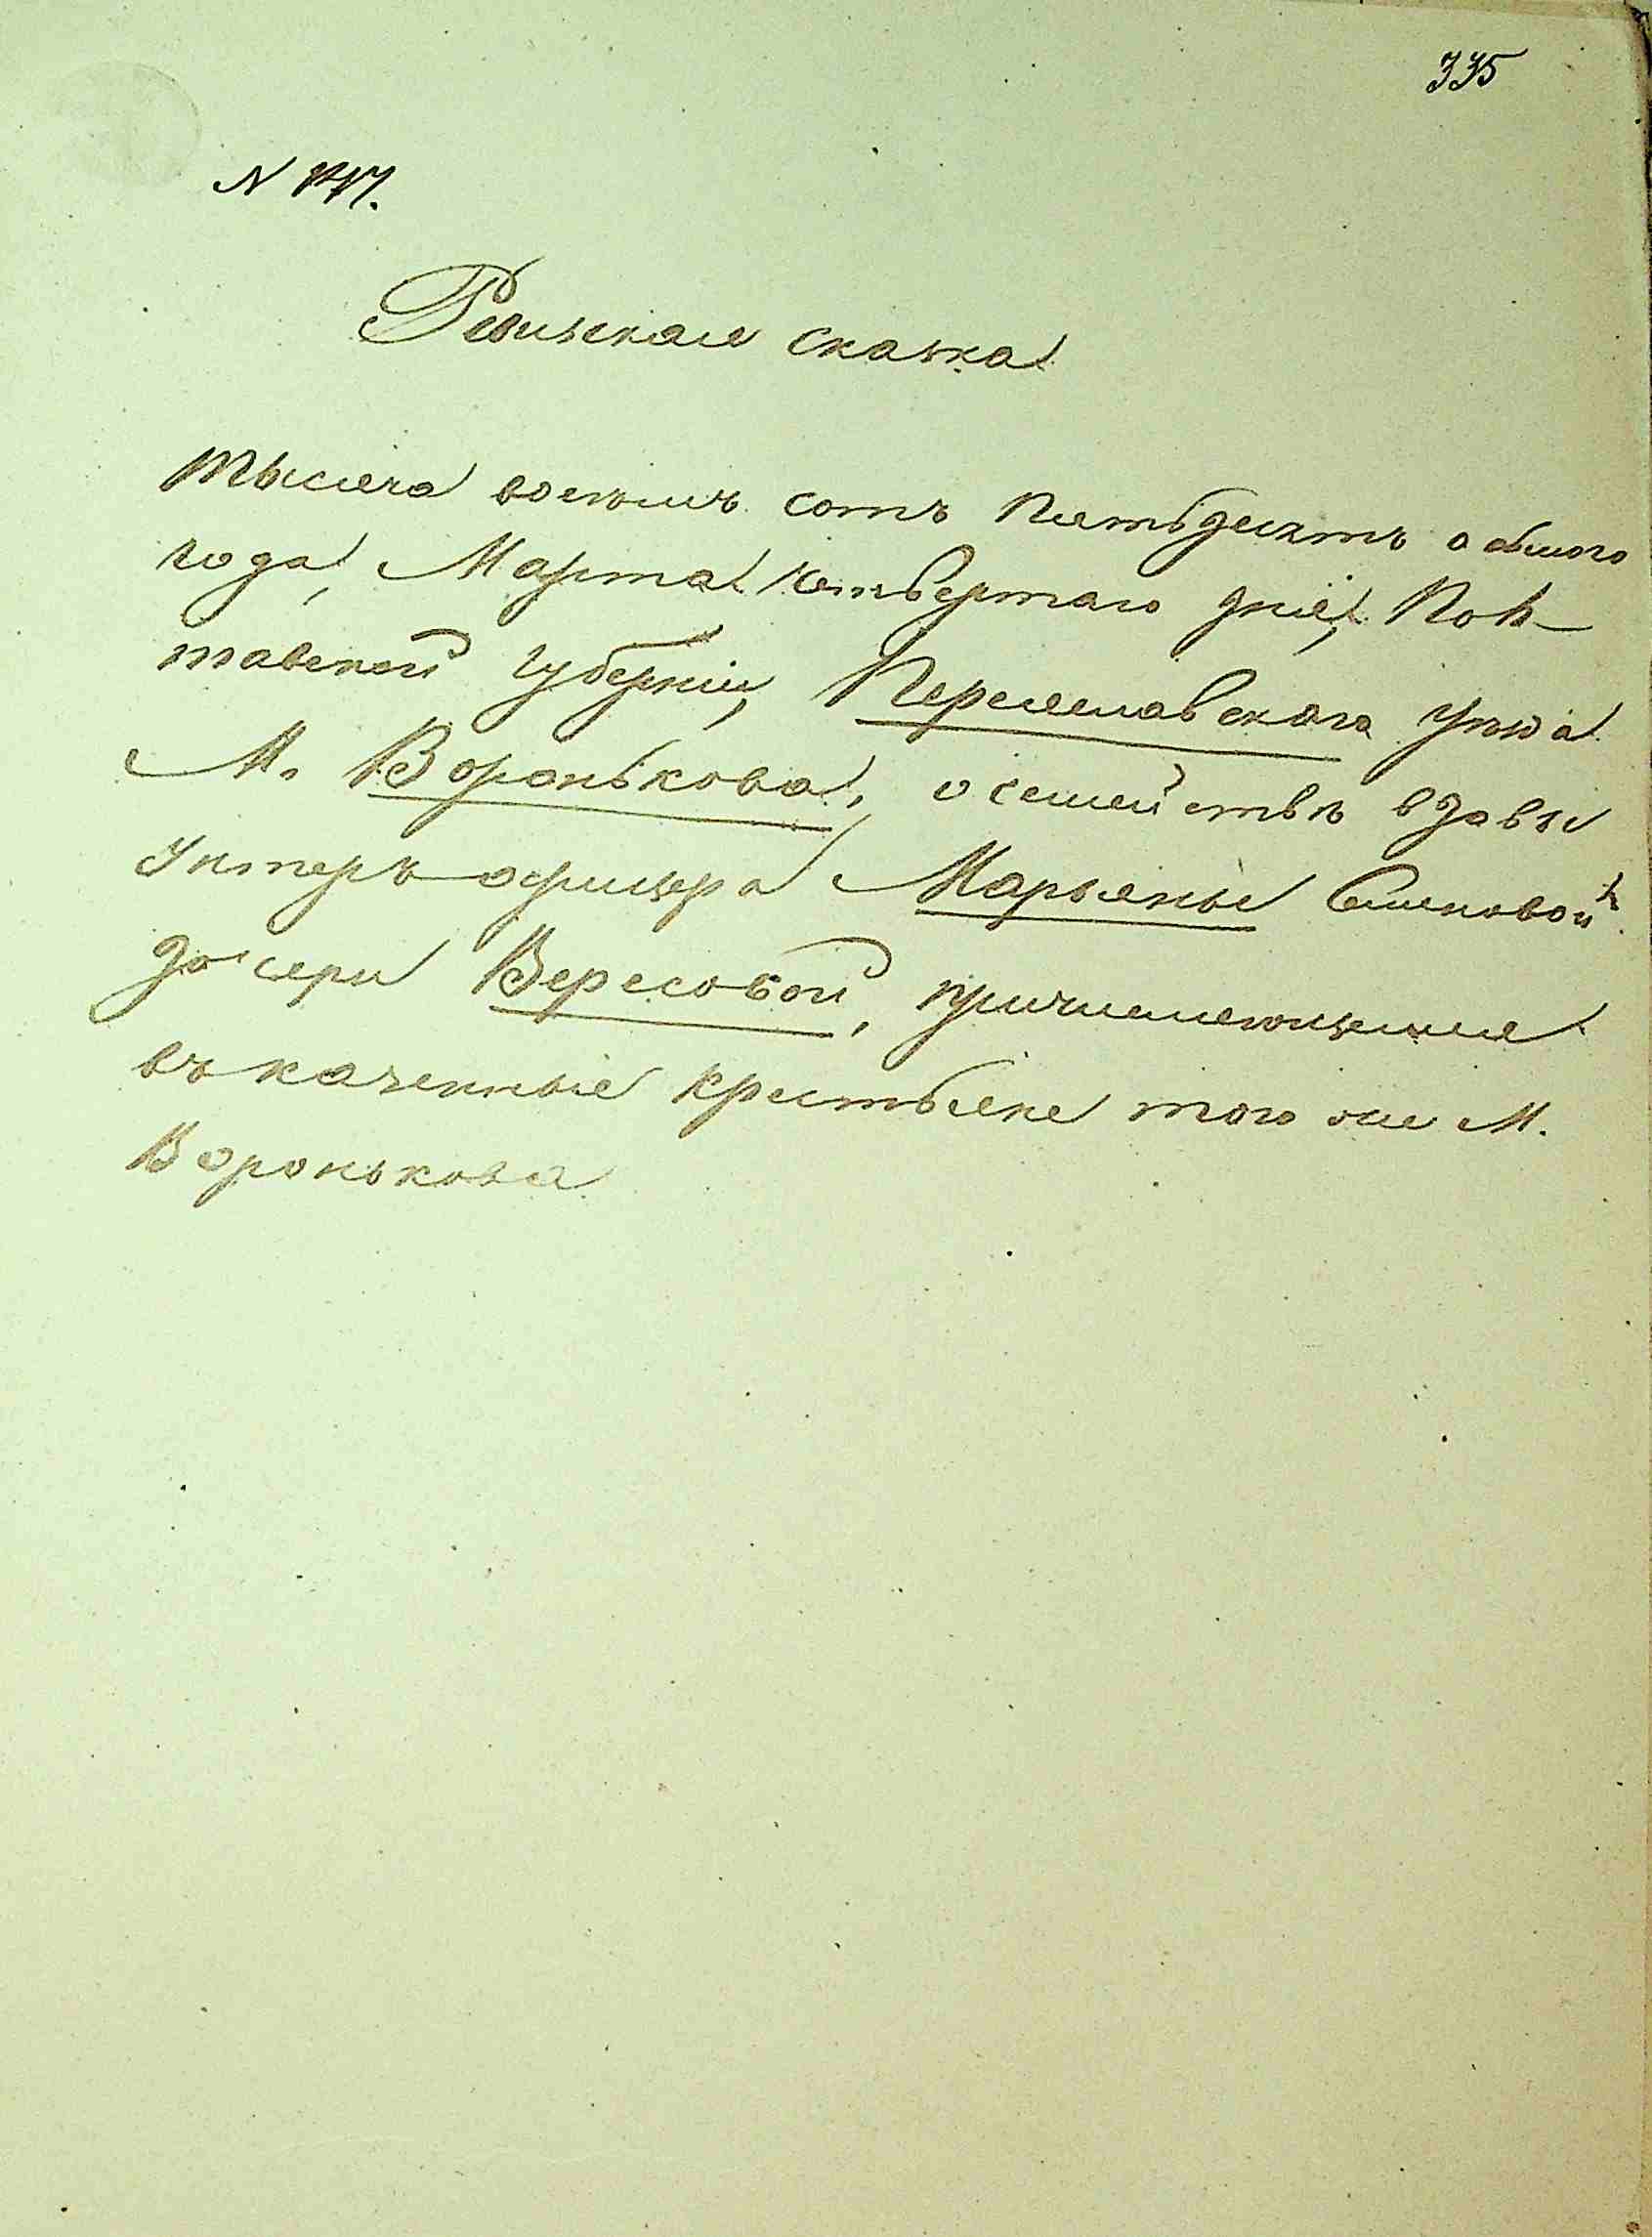 335
N
Ревизская сказка
Тысяча восемь сотъ пятьдесятъ осьмого
года, Марта четвертаго дня, Пол-
тавской губерніи, Переяславскаго уезда
М. Воронькова, о семействѣ вдовы
унтеръ-офицера Марьяны Семеновой
дочери Вересовой, причисляющемся
въ казенные крестьяне того же М.
Воронькова